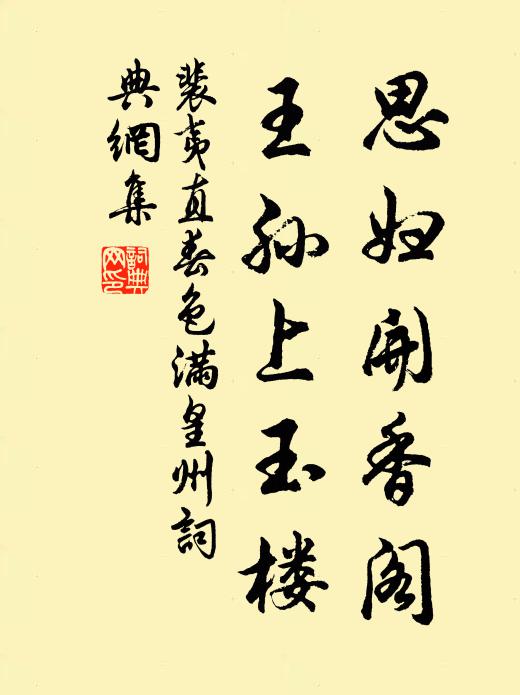 思妇開香阁
王孙上玉楼
裴夷直春色满皇州詞
典網集
詞典
网印